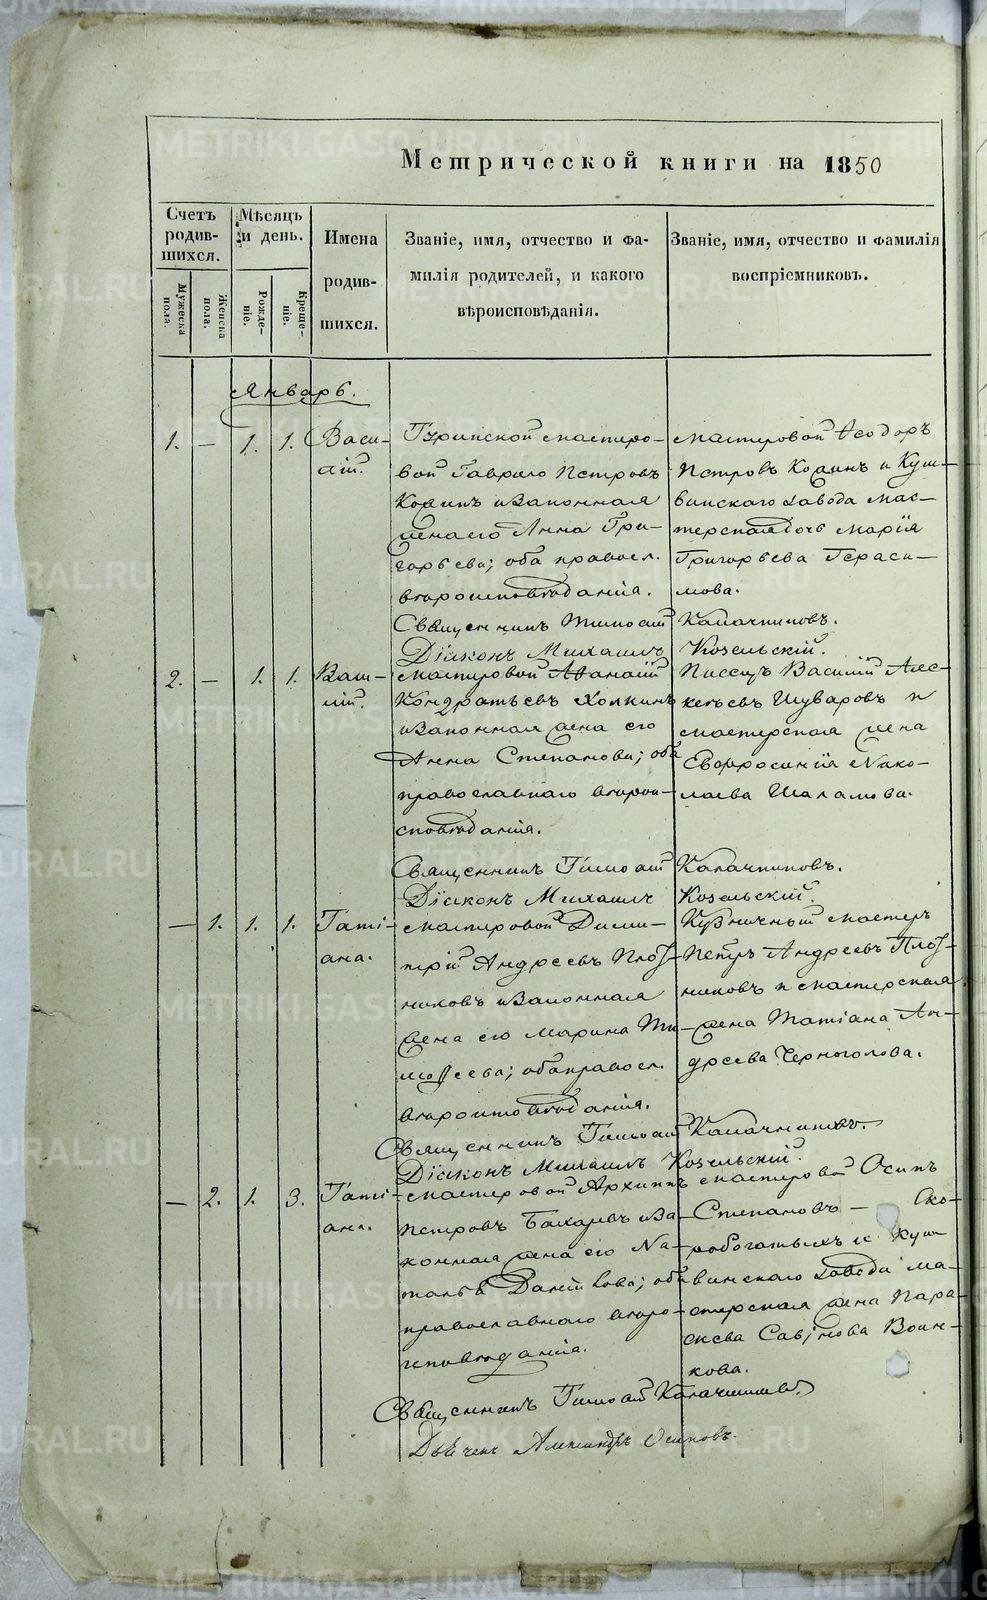 Метрической книги на 1850
Счетъ родив-шихся.
Мужеска пола.
Женска пола.
Мѣсяцъ и день.
Рожде-ніе.
Креще-ніе.
Имена родив-шихся.
Званіе, имя, отчество и фа-
милія родителей, и какого
вѣроисповѣданія.
Званіе, имя, отчество и фамилія
воспріемниковъ.
Январь.
1. — 1. 1. Васи-
лій.
Туринской мастеро-
вой Гаврило Петровъ
и Законная
жена его Анна Гри-
горьева; оба правосл.
вѣроисповѣданія.
мастеровой Ѳеодоръ
Петровъ и Куш-
винскаго завода мас-
терская дочь Марія
Григорьева Гераси-
мова.
Священникъ Тимоѳей Калачниковъ.
Діаконъ Михаилъ Козельскій.
2. — 1. 1. Васи-
лій.
мастеровой Аѳанасій
Кондратьевъ
и Законная жена его
Анна Степанова; оба
православнаго вѣрои-
сповѣданія.
Писецъ Василій Але-
ксѣевъ Шуваровъ и
мастерская жена
Евфросинія Нико-
лаева Шаламова.
Священникъ Тимоѳей Калачниковъ.
Діаконъ Михаилъ Козельскій.
— 1. 1. 1. Таті-
ана.
мастеровой Дими-
трій Андреевъ Плот-
никовъ и Законная
жена его Марина Ти-
моѳеева; оба правосл.
вѣроисповѣданія.
Кузничный мастеръ
Петръ Андреевъ Плот-
никовъ и мастерская
жена Татіана Ан-
дреева Черноголова.
Священникъ Тимоѳей Калачниковъ.
Діаконъ Михаилъ Козельскій.
— 2. 1. 3. Таті-
ана.
мастеровой Архипъ
Петровъ Бахаревъ и За-
конная жена его На-
талья Данилова; оба
православнаго вѣро-
исповѣданія.
мастеровой Осипъ
Степановъ — Ско-
робогатыхъ и Куш-
винскаго завода ма-
стерская жена Пара-
скева Савинова Воин-
кова.
Священникъ Тимоѳей Калачниковъ.
Дьячекъ Александръ Осиповъ.
METRIKI.GASO-URAL.RU